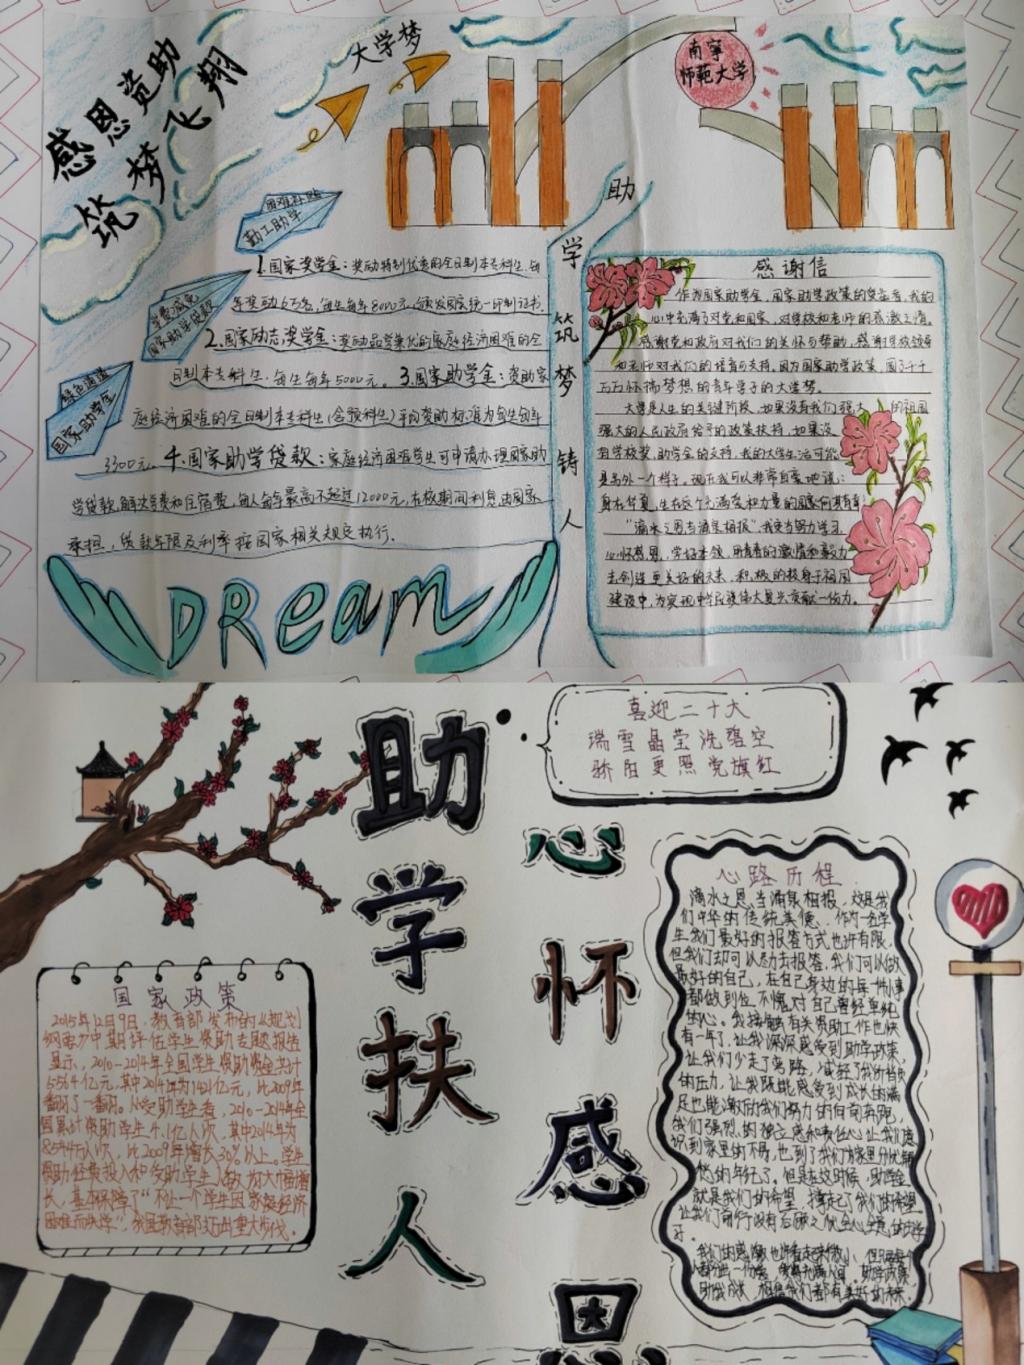 感恩资助
筑梦飞翔
大学梦
南宁
师范大学
困难补贴
勤工助学
学费减免
国家助学贷款
绿色通道
国家助学金
1.国家奖学金：奖励特别优秀的全日制本专科生，每
年奖励6万名，每生每年8000元，颁发国家统一印制证书.
2.国家励志奖学金：奖励品学兼优的家庭经济困难的全
日制本专科生，每生每年5000元。3.国家助学金：资助家
庭经济困难的全日制本专科生(含预科生)平均资助标准为每生每年
3300元。4.国家助学贷款：家庭经济困难学生可申请办理国家助
学贷款,解决学费和住宿费，每人每年最高不超过12000元,在校期间利息由国家
承担，贷款年限及利率按国家相关规定执行.
DReam
助学筑梦铸人
感谢信
作为国家助学金，国家助学政策的受益者，我的
心中充满了对党和国家，对学校和老师的感激之情。
感谢党和政府对我们的关怀与帮助，感谢学校领导
和老师对我们的培育与支持，因为国家助学政策，圆了千千
万万怀揣梦想的青年学子的大学梦。
大学是人生的关键阶段，如果没有我们强大的祖国
强大的人民政府给予的政策扶持，如果没
有学校奖、助学金的支持，我的大学生活可能
是另外一个样子。现在我可以非常自豪地说：
身在华夏，生在这个充满爱和力量的国家何其有幸！
“滴水之恩当涌泉相报”我应当努力学习，
心怀感恩，学好本领，用青春的激情和毅力
去创造更美好的未来，积极的投身于祖国
建设中，为实现中华民族伟大复兴贡献一份力。
喜迎二十大
瑞雪晶莹洗碧空
骄阳更照党旗红
助学扶人
心怀感恩
国家政策
2015年12月9日，教育部发布的《规划
纲要》中期评估学生资助专题报告
显示，2010-2014年全国学生资助资金共计
5564亿元，其中2014年为1421亿元，比2009年
翻了一番。从受助学生看，2010-2014年全
国累计资助学生4.1亿人次，其中2014年为
8544万人次，比2009年增长30%以上。学生
资助经费投入和受助学生人数大幅增
长，基本保障了“不让一个学生因家庭经济
困难而失学”，我国教育部迈出重大步伐。
心路历程
滴水之恩，当涌泉相报，这是我
们中华的传统美德，作为一名学
生我们最好的报答方式也许有限，
但我们却可以努力去报答，我们可以做
最好的自己，在自己身边的每一件小事
都做到位，不愧对自己曾经单纯
的心。我接触有关资助工作也快
有一年了，让我深深感受到助学政策，
让我们少走了弯路，减轻了我们背负
的压力，让我既能感受到成长的满
足也能激励我们努力的向前奔跑，
我们强烈的独立感和责任心让我们意
识到家里的不易，也到了我们为家里分忧解
忧的年纪了。但是在这时候，助学金
就是我们的希望，撑起了我们的希望
让我们前行没有后顾之忧全心全意的学
习。
助我成长，相信我们都有美好的未来.